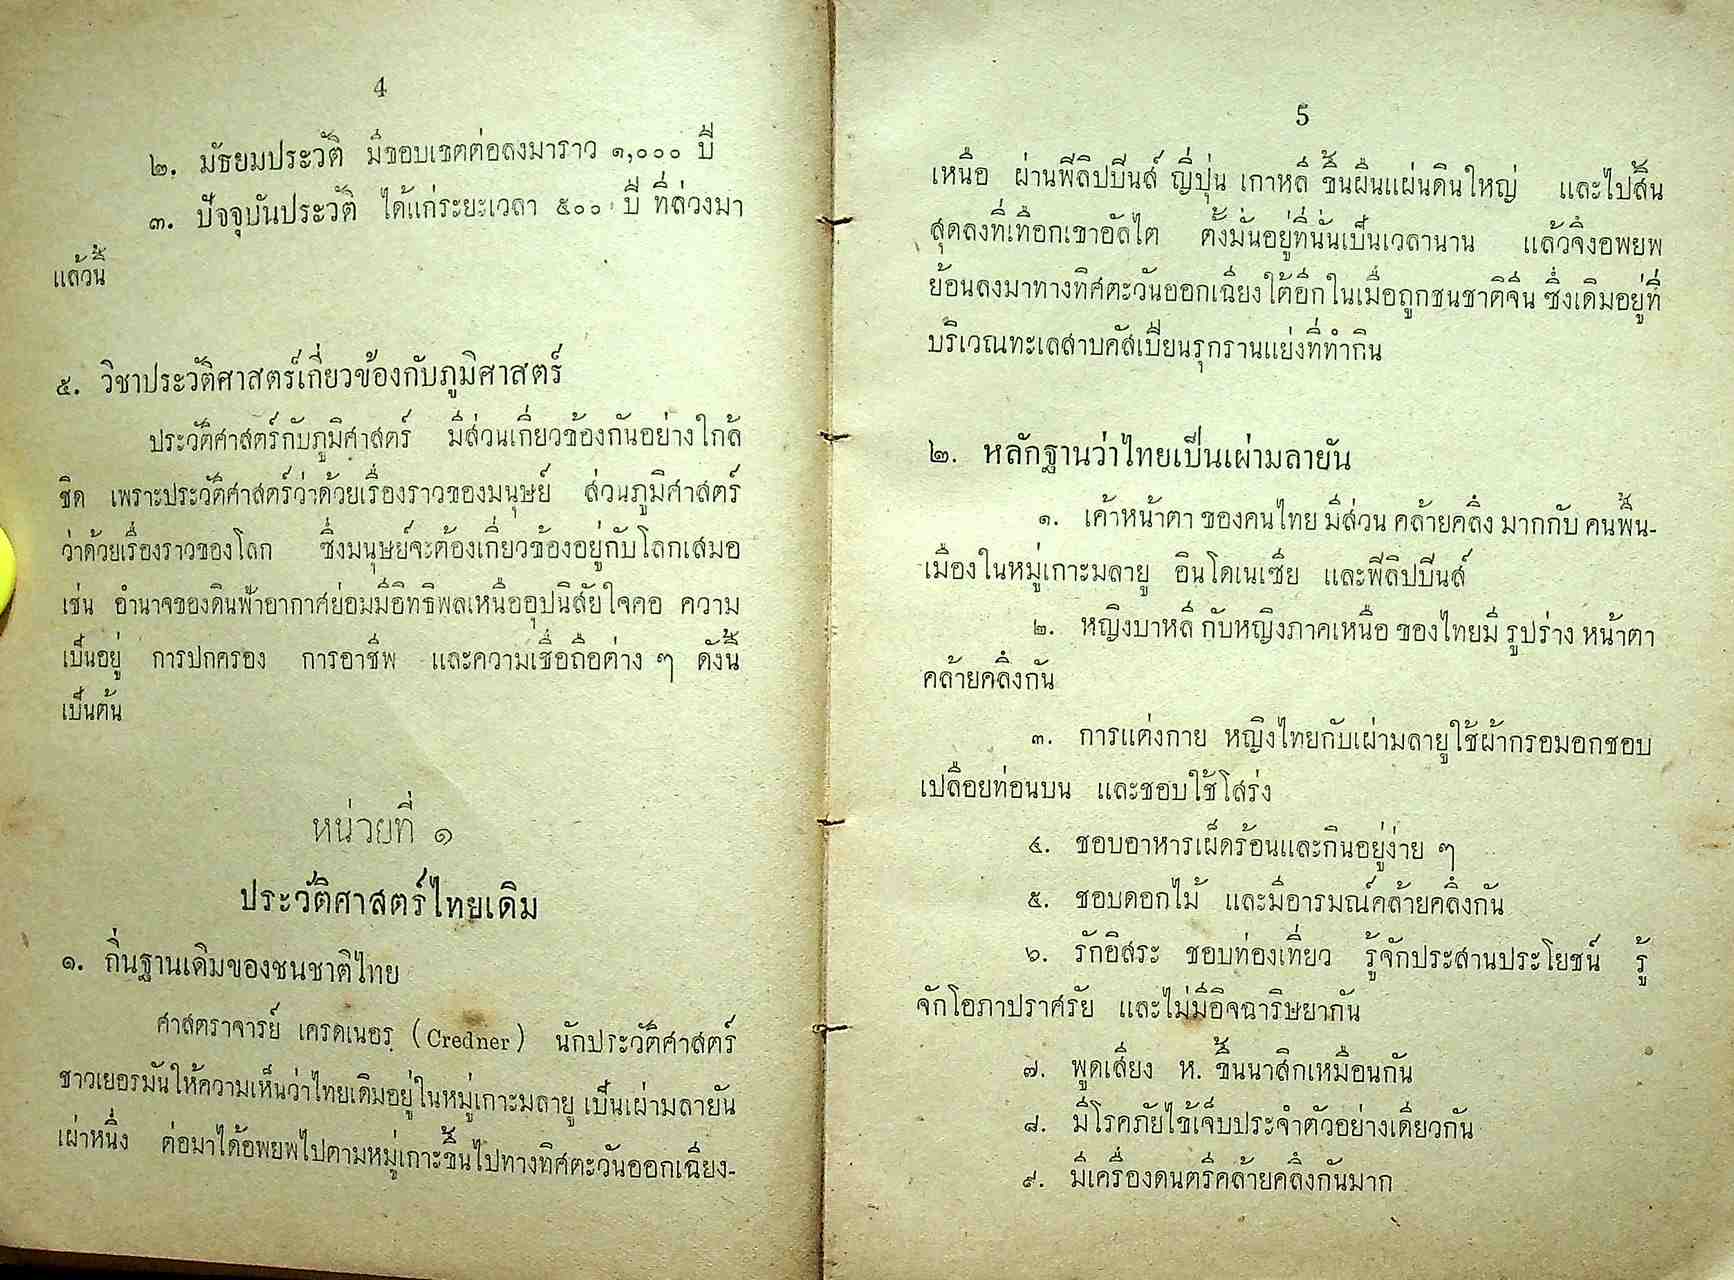 4
๒. มัธยมประวัติ มีขอบเขตต่อลงมาราว ๑,๐๐๐ ปี
๓. ปัจจุบันประวัติ ได้แก่ระยะเวลา ๕๐๐ ปี ที่ล่วงมา
แล้วนี้
๕. วิชาประวัติศาสตร์เกี่ยวข้องกับภูมิศาสตร์
ประวัติศาสตร์กับภูมิศาสตร์ มีส่วนเกี่ยวข้องกันอย่างใกล้
ชิด เพราะประวัติศาสตร์ว่าด้วยเรื่องราวของมนุษย์ ส่วนภูมิศาสตร์
ว่าด้วยเรื่องราวของโลก ซึ่งมนุษย์จะต้องเกี่ยวข้องอยู่กับโลกเสมอ
เช่น อำนาจของดินฟ้าอากาศย่อมมีอิทธิพลเหนืออุปนิสัยใจคอ ความ
เป็นอยู่ การปกครอง การอาชีพ และความเชื่อถือต่าง ๆ ดังนี้
เป็นต้น
หน่วยที่ ๑
ประวัติศาสตร์ไทยเดิม
๑. ถิ่นฐานเดิมของชนชาติไทย
ศาสตราจารย์ เครดเนอร์ (Credner) นักประวัติศาสตร์
ชาวเยอรมันให้ความเห็นว่าไทยเดิมอยู่ในหมู่เกาะมลายู เป็นเผ่ามลายัน
เผ่าหนึ่ง ต่อมาได้อพยพไปตามหมู่เกาะขึ้นไปทางทิศตะวันออกเฉียง-
5
เหนือ ผ่านฟิลิปปีนส์ ญี่ปุ่น เกาหลี ขึ้นผืนแผ่นดินใหญ่ และไปสิ้น
สุดลงที่เทือกเขาอัลไต ตั้งมั่นอยู่ที่นั่นเป็นเวลานาน แล้วจึงอพยพ
ย้อนลงมาทางทิศตะวันออกเฉียงใต้อีกในเมื่อถูกชนชาติจีน ซึ่งเดิมอยู่ที่
บริเวณทะเลสาบคัสเปียนรุกรานแย่งที่ทำกิน
๒. หลักฐานว่าไทยเป็นเผ่ามลายัน
๑. เค้าหน้าตา ของคนไทย มีส่วน คล้ายคลึง มากกับ คนพื้น-
เมืองในหมู่เกาะมลายู อินโดเนเซีย และฟีลิปปีนส์
๒. หญิงบาหลี กับหญิงภาคเหนือ ของไทยมี รูปร่าง หน้าตา
คล้ายคลึงกัน
๓. การแต่งกาย หญิงไทยกับเผ่ามลายูใช้ผ้ากรอมอกชอบ
เปลือยท่อนบน และชอบใช้โสร่ง
๔. ชอบอาหารเผ็ดร้อนและกินอยู่ง่าย ๆ
๕. ชอบดอกไม้ และมีอารมณ์คล้ายคลึงกัน
๖. รักอิสระ ชอบท่องเที่ยว รู้จักประสานประโยชน์ รู้
จักโอภาปราศรัย และไม่มีอิจฉาริษยากัน
๗. พูดเสียง ห. ขึ้นนาสิกเหมือนกัน
๘. มีโรคภัยไข้เจ็บประจำตัวอย่างเดียวกัน
๙. มีเครื่องดนตรีคล้ายคลึงกันมาก